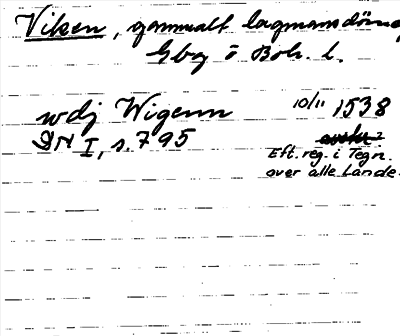 Viken, gammalt lagmansdöme
Gbg o Boh. l.
wdj Wigenn 10/11 1538
DN I, s. 795
Eft. reg. i Tegn.
over alle Lande